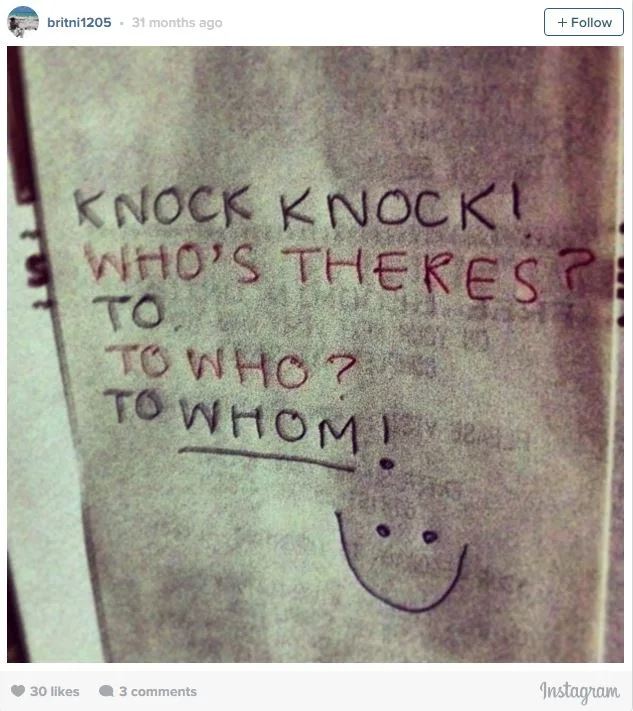 britni1205 • 31 months ago
+ Follow
KNOCK KNOCK!
WHO'S THERES?
TO.
TO WHO?
TO WHOM!
30 likes 3 comments
Instagram